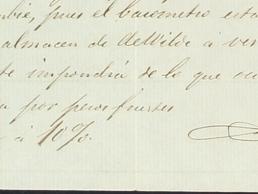 pues el barómetro está
almacen de DeWilde á ver
te impondrá de lo que
a por pesos fuertes
á 10%.